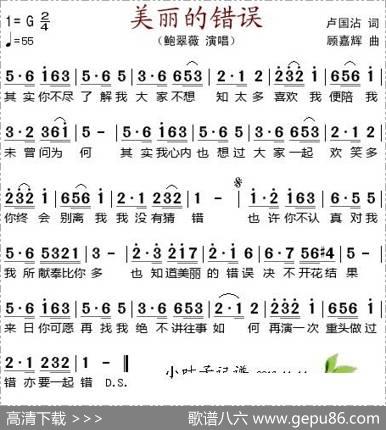 美丽的错误
1=G 2/4
♩=55
(鲍翠薇 演唱)
卢国沾 词
顾嘉辉 曲
5·6 1̇63 | 5·6 1̇63 | 5·6 653 | 2·1 2 | 232 1̇ | 656 1̇ |
其实你不尽了解我大家不想 知太多 喜欢我便陪我
2·3 361̇ | 5 - | 5·6 1̇63 | 5·6 1̇63 | 5·6 653 | 2·1 2 |
未曾问为 何 其实我心内也想过大家一起 欢笑多
232 1̇ | 656 1̇ | 2·1 232 | 1 - | 1·2 1̇63 | 5·6 1̇65 |
你终会别离我我没有猜 错 也许你不认真对我
5·6 5321 | 3 - | 2·3 217 | 2·1 6 | 6·7 5 | 56 4 |
我所献奉比你多 也知道美丽的错误决不开花结果
5·6 1̇63 | 5·6 1̇63 | 5·6 653 | 2·1 2 | 232 1̇ | 656 1̇ |
来日你可愿再找我绝不讲往事如何再演一次重头做过
2·1 232 | 1 - ‖ D.S.
错亦要一起错
小叶子记谱
高清下载 >>>
歌谱八六 www.gepu86.com